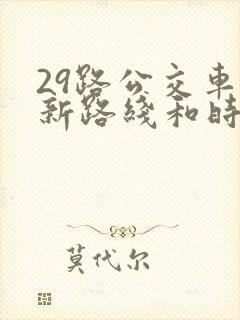 29路公交車
新路綫和時
莫代尔